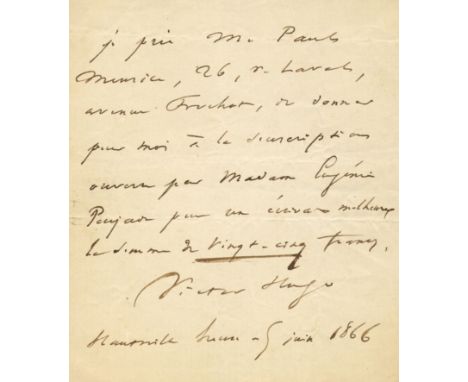 je prie M. Paul
Meurice, 26, r. Laval,
avenue Frochot, de donner
pour moi à la souscription
ouverte par Madame Eugénie
pour un écrivain malheureux
la somme de vingt-cinq francs.
Victor Hugo
Hauteville house - 5 juin 1866